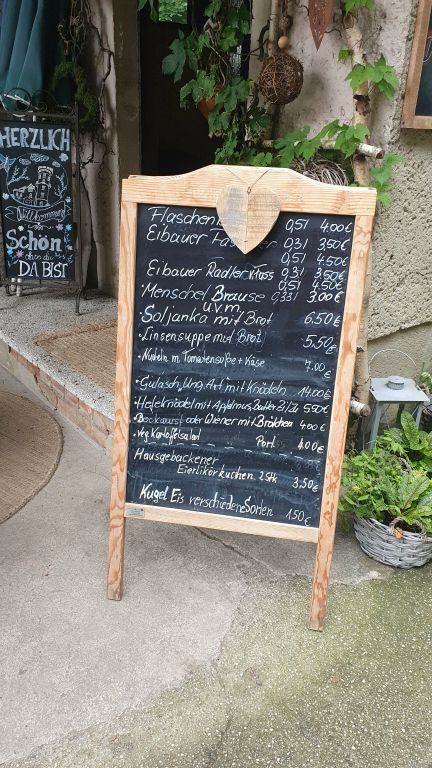 HERZLICH
Willkommen
Schön
dass du
DA BIST
Flaschen 0,5l 4.00€
Eibauer 0,3l 3.50€
0,5l 4.50€
Eibauer Radler 0,3l 3,50€
0,5l 4.50€
Menschel Brause 0.33l 3.00€
u.v.m.
Soljanka mit Brot 6.50€
Linsensuppe mit Brot 5,50€
Nudeln m. Tomatensoße + Käse 7.00€
Gulasch, Ung. Art mit Knödeln 14.00€
Hefeknödel mit Apfelmus, Butter Zi/Zu 5,50€
Bockwurst oder Wiener mit Brötchen 4.00€
Veg. Kartoffelsalad Port. 4.00€
Hausgebackener
Eierlikörkuchen 2 Stk 3,50€
Kugel Eis verschiedene Sorten 1.50€